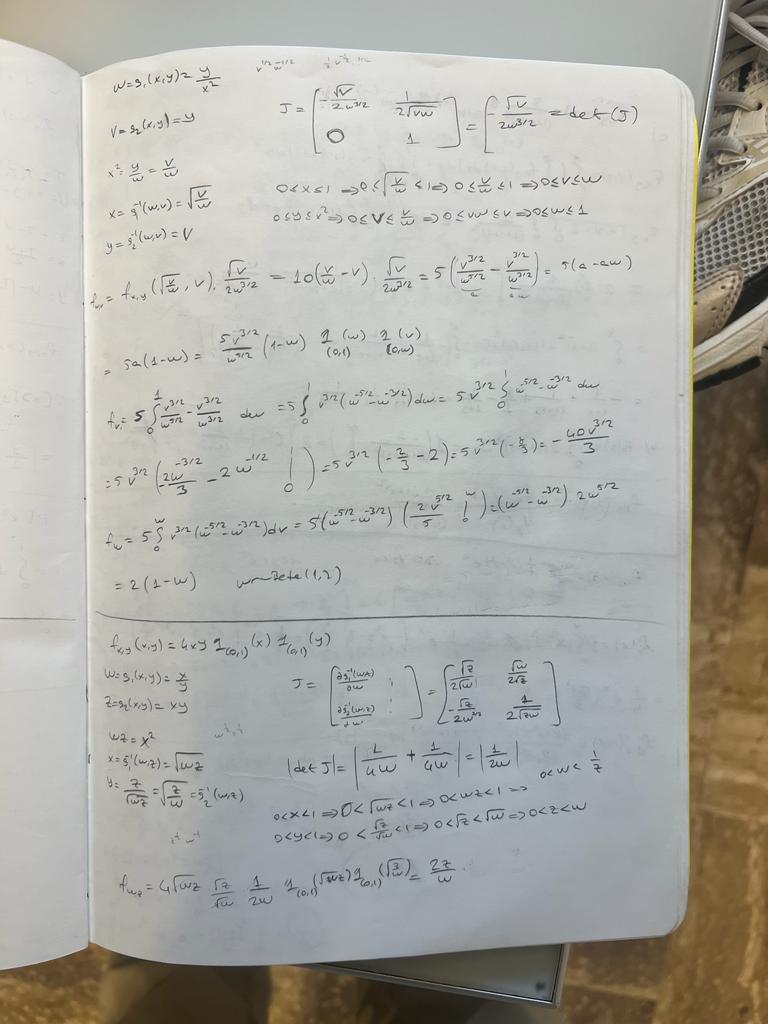 w=g₁(x,y)=y/x²
v^{1/2} w^{-1/2}
v=g₂(x,y)=y
J=[-√v/2w^{3/2} 1/2√vw ; 0 1]=[√v/2w^{3/2} =det(J)
x²=y/w=v/w
x=g₁⁻¹(w,v)=√(v/w)
0<x≤1 ⇒0≤√(v/w)<1⇒0≤v/w≤1⇒0≤v≤w
0≤y≤x²⇒0≤v≤v/w⇒0≤vw≤v⇒0≤w≤1
y=g₂⁻¹(w,v)=v
f_{w,v}=f_{x,y}(√(v/w),v)·√v/2w^{3/2}=10(v/w-v)·√v/2w^{3/2}=5(v^{3/2}/w^{5/2}-v^{3/2}/w^{3/2})=5(a-aw)
a aw
=5a(1-w)=5v^{3/2}/w^{5/2}(1-w) 1_{(0,1)}(w) 1_{(0,w)}(v)
f_v=5∫₀¹v^{3/2}/w^{5/2}-v^{3/2}/w^{3/2} dw=5∫₀¹v^{3/2}(w^{-5/2}-w^{-3/2})dw=5v^{3/2}∫₀¹w^{-5/2}-w^{-3/2}dw
=5v^{3/2}(2w^{-3/2}/3-2w^{-1/2}|₀¹)=5v^{3/2}(-2/3-2)=5v^{3/2}(-8/3)=-40v^{3/2}/3
f_w=5∫₀ʷv^{3/2}(w^{-5/2}-w^{-3/2})dv=5(w^{-5/2}-w^{-3/2})(2v^{5/2}/5|₀ʷ)=(w^{-5/2}-w^{-3/2})·2w^{5/2}
=2(1-w) w~Beta(1,2)
f_{x,y}(x,y)=4xy 1_{(0,1)}(x) 1_{(0,1)}(y)
w=g₁(x,y)=x/y
z=g₂(x,y)=xy
J=[∂g₁⁻¹(w,z)/∂w ⋮ ; ∂g₂⁻¹(w,z)/∂w ⋮]=[√z/2√w √w/2√z ; -√z/2w^{3/2} 1/2√zw]
wz=x²
x=g₁⁻¹(w,z)=√wz
|det J|=|1/4w+1/4w|=|1/2w|
y=z/√wz=√(z/w)=g₂⁻¹(w,z)
0<x<1⇒0<√wz<1⇒0<wz<1⇒ 0<w<1/z
0<y<1⇒0<√z/√w<1⇒0<√z<√w⇒0<z<w
f_{wz}=4√wz √z/√w 1/2w 1_{(0,1)}(√wz)1_{(0,1)}(√(z/w))=2z/w